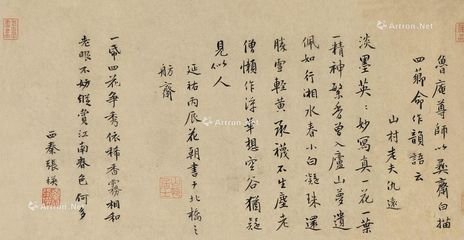 魯庵尊師以彝齋白描
四薌命作韻語云
山村老夫仇遠
淡墨英英妙寫真一花一葉
一精神繁香曾入廬山夢遺
佩如行湘水春小白凝珠還
勝雪輕黃承襪不生塵老
僧懶作深華想空谷猶疑
見似人
延祐丙辰花朝書于北橋之
舫齋
一香四花爭秀依稀香霧相和
老眼不妨縱賞江南春色何多
西秦張楧
Artron.Net